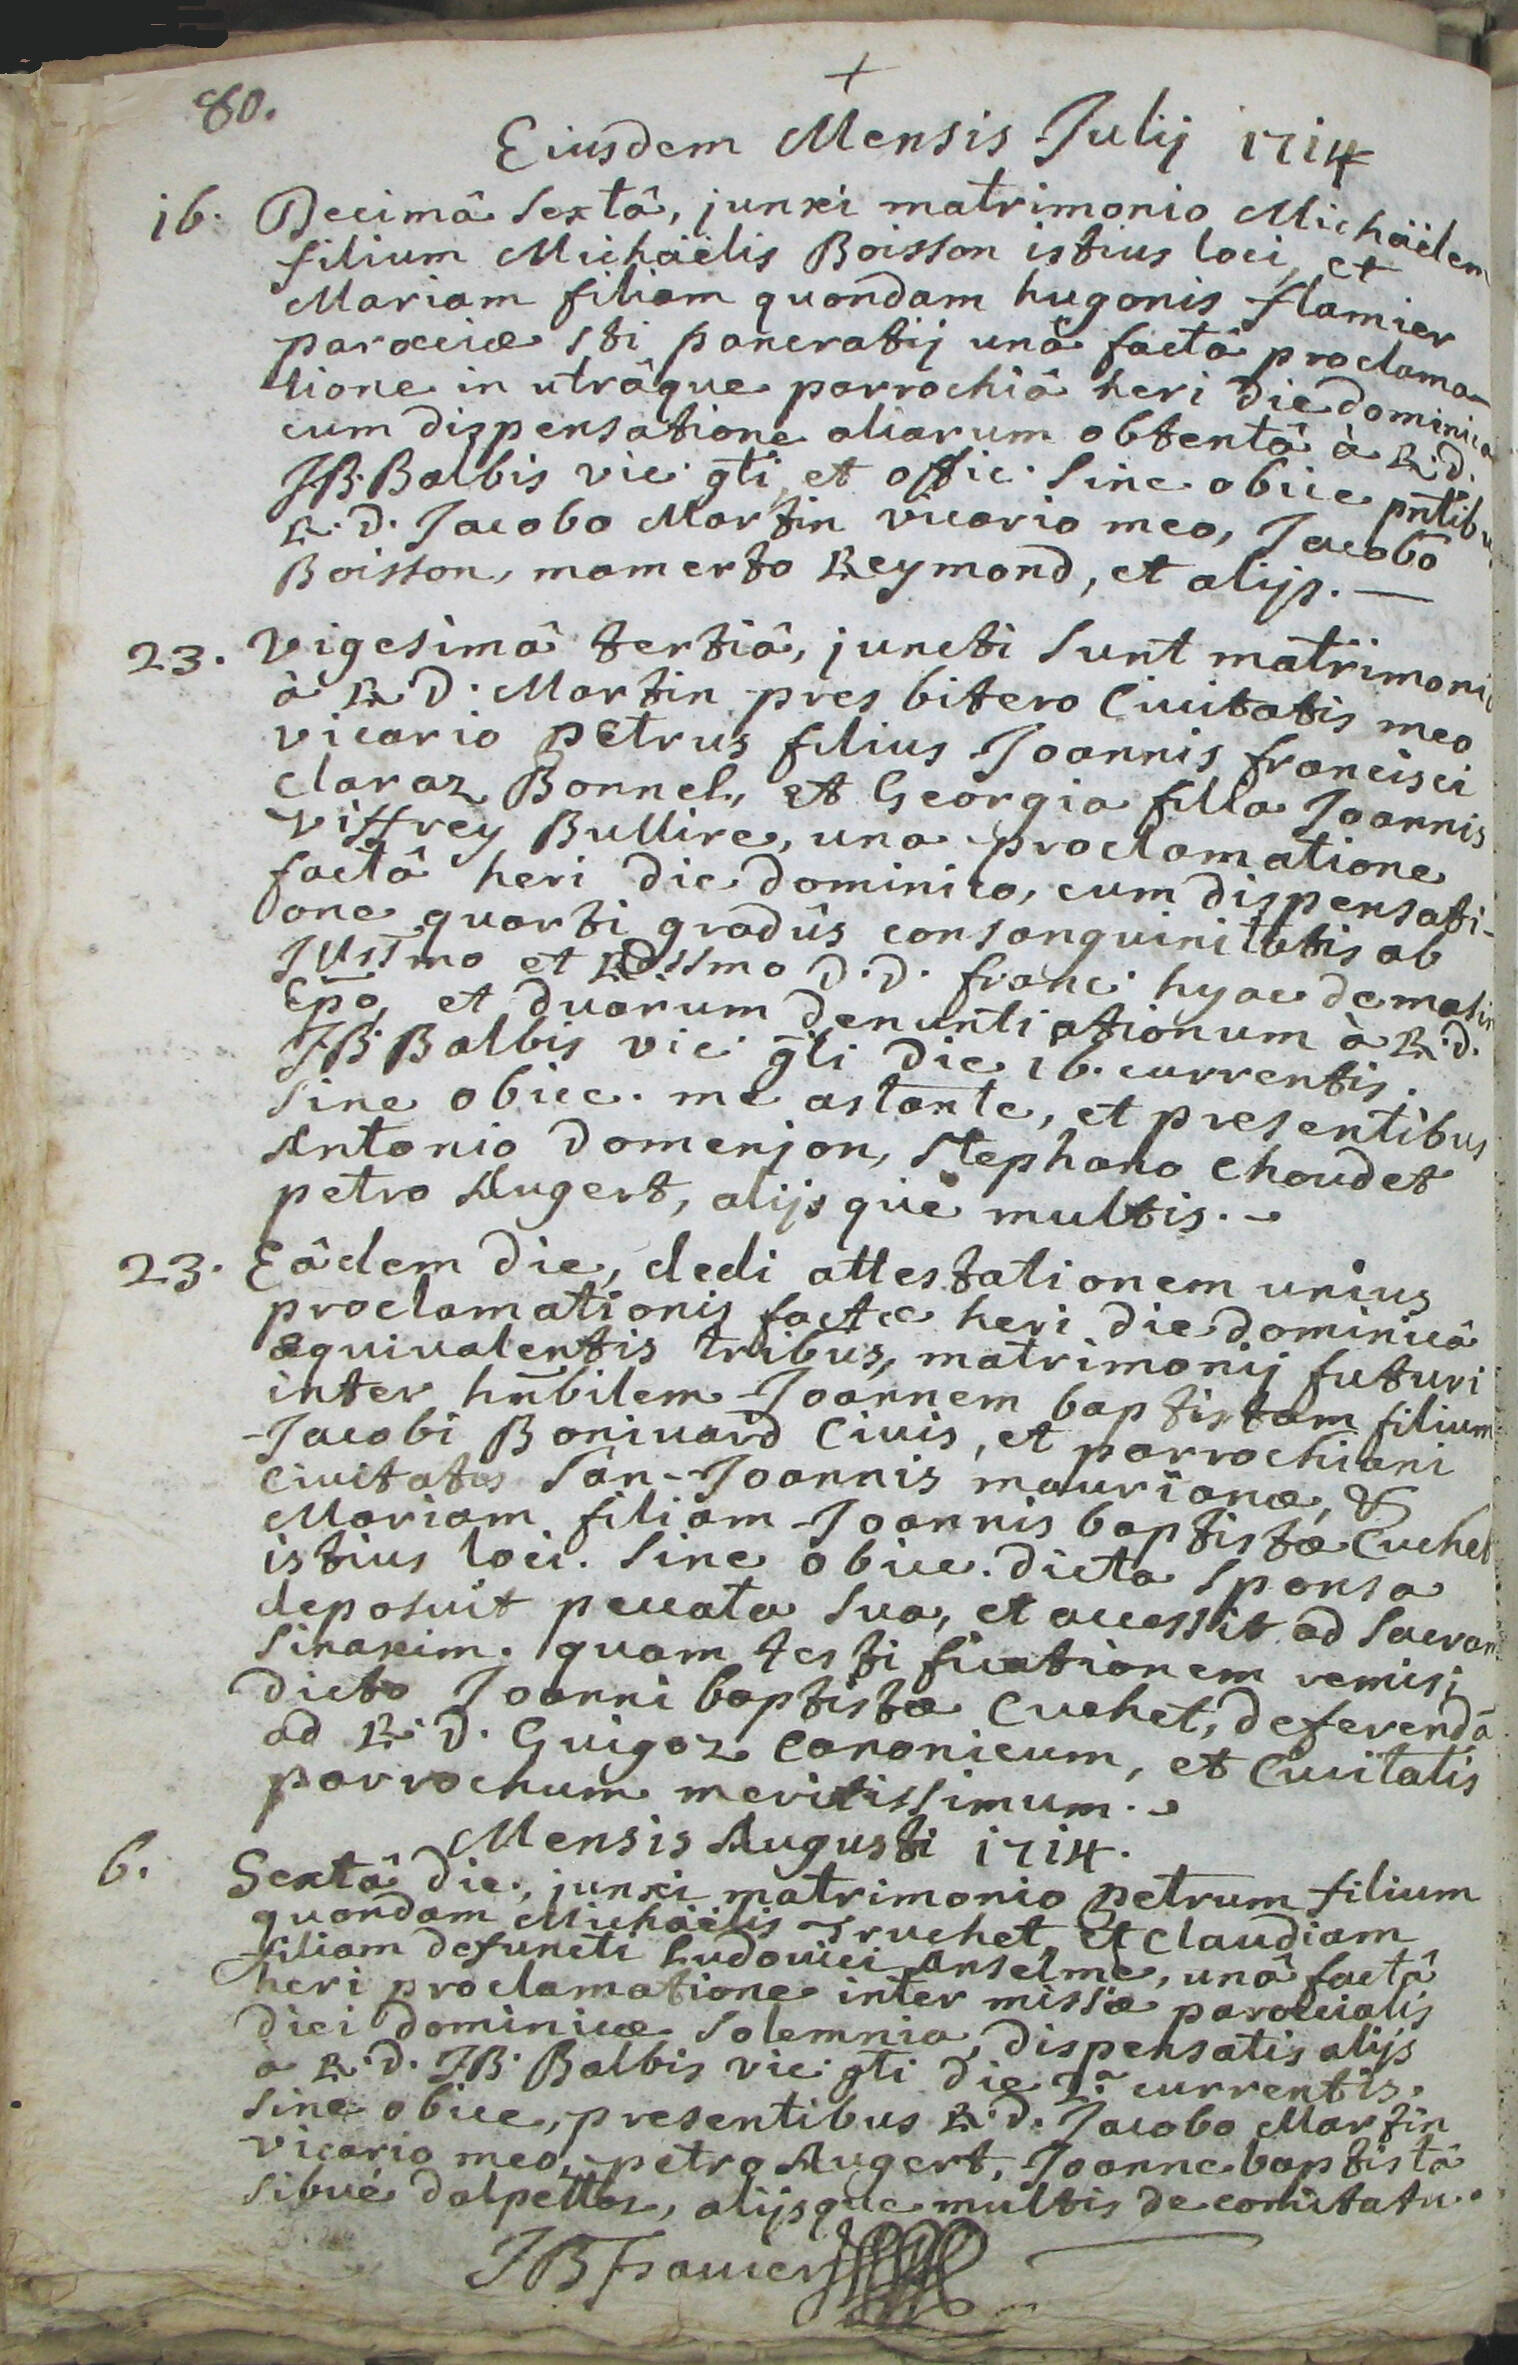 80.
+
Eiusdem Mensis Julij 1714
16. Decimâ sextâ, junxi matrimonio Michäelem
filium Michäelis Boisson istius loci, et
Mariam filiam quondam hugonis flamier
parœciæ sti pancratij unâ factâ proclama-
tione in utrâque parrochiâ heri die dominica
cum dispensatione aliarum obtentâ à R.d.
JB. Balbis vic. gli et offic. sine obice pntibus
R.d. Jacobo Martin vicario meo, Jacobo
Boisson, mamerto Reymond, et alijs. —
23. Vigesimâ tertiâ, juncti sunt matrimonio
à R.D. Martin presbitero Ciuitatis meo
vicario petrus filius Joannis francisci
claraz Bonnel, et Georgia filia Joannis
Viffrey Bullire, una proclamatione
factâ heri die dominico, cum dispensati-
one quarti gradûs consanguinitatis ab
Jllsmo et Rdssmo D.D. franc. hyac de masin
Epo, et duarum denuntiationum à R.d.
JB. Balbis vic. gli die 16. currentis.
sine obice. me astante, et presentibus
Antonio Domenjon, stephano choudet
petro Augert, alijsque multis.
23. Eâdem die, dedi attestationem unius
proclamationis factæ heri die dominicâ
æquiualentis tribus, matrimonij futuri
inter hnbilem Joannem baptistam filium
Jacobi Boniuard Ciuis, et parrochiani
Ciuitatis San-Joannis maurianæ, &
Mariam filiam Joannis baptistæ Cuchet
istius loci. sine obice. dicta sponsa
deposuit peccata sua, et accessit ad sacram
sinaxim. quam testificationem remisi
dicto Joanni baptistæ Cuchet, deferendâ
ad R.D. Guigoz Canonicum, et Ciuitatis
parrochum meritissimum.
Mensis Augusti 1714.
6. Sextâ die, junxi matrimonio petrum filium
quondam Michäelis Truchet, et Claudiam
filiam defuncti Ludouici Anselme, unâ factâ
heri proclamatione inter missæ parœcialis
diei dominicæ solemnia, dispensatis alijs
a R.d. JB. Balbis vic. gli die currentis.
sine obice, presentibus R.d. Jacobo Martin
vicario meo, petro Augert, Joanne baptistâ
sibué dalpettaz, alijsque multis de comitatu.